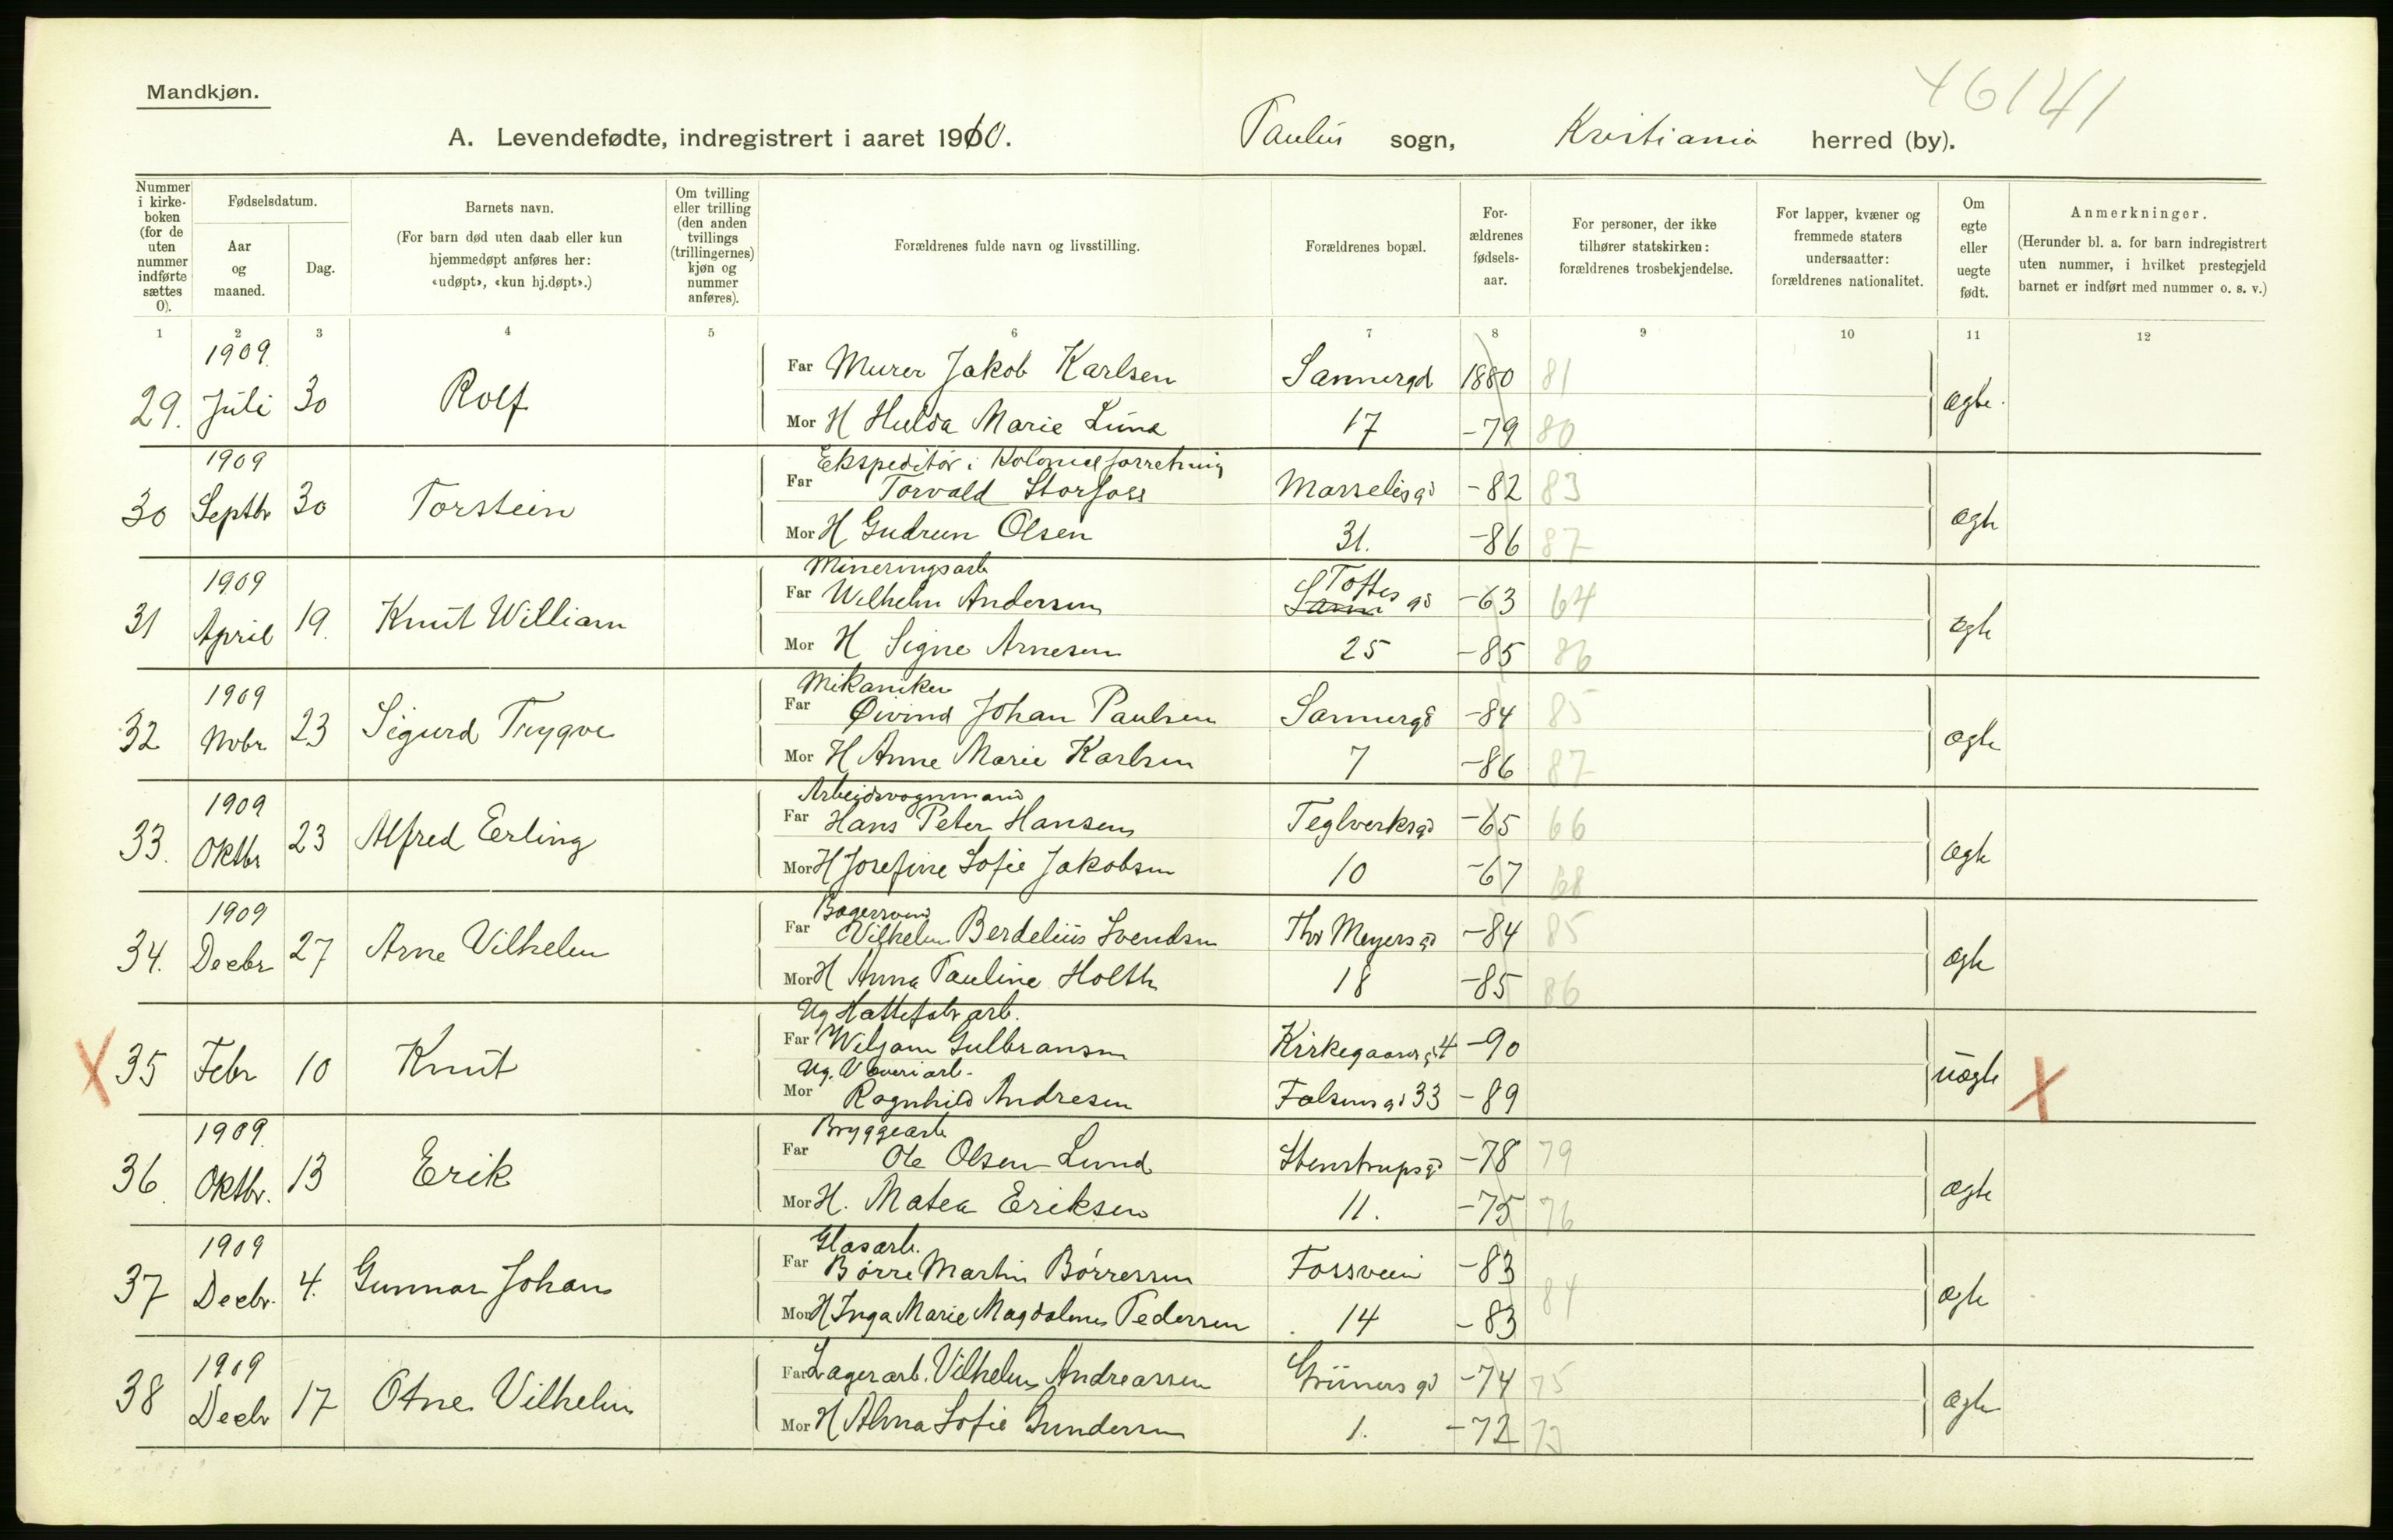 46141
Mandkjøn.
A. Levendefødte, indregistrert i aaret 1910. Paulus sogn, Kristiania herred (by).
Nummer i kirke-boken (for de uten nummer indførte sættes 0).
Fødselsdatum.
Aar og maaned.
Dag.
Barnets navn.
(For barn død uten daab eller kun hjemmedøpt anføres her: «udøpt», «kun hj.døpt».)
Om tvilling eller trilling (den anden tvillings (trillingernes) kjøn og nummer anføres).
Forældrenes fulde navn og livsstilling.
Forældrenes bopæl.
For-ældrenes fødsels-aar.
For personer, der ikke tilhører statskirken: forældrenes trosbekjendelse.
For lapper, kvæner og fremmede staters undersaatter: forældrenes nationalitet.
Om egte eller uegte født.
Anmerkninger.
(Herunder bl. a. for barn indregistrert uten nummer, i hvilket prestegjeld barnet er indført med nummer o. s. v.)
1 2 3 4 5 6 7 8 9 10 11 12
29. 1909. Juli 30 Rolf
Far Murer Jakob Karlsen Sannergd 1880 81
Mor H Hulda Marie Lund 17 -79 80 ægte.
30 1909 Septbr 30 Torstein
Ekspeditør i Kolonialforretning
Far Torvald Storfoss Marselisgd -82 83
Mor H Gudrun Olsen 31. -86 87 ægte
31 1909 April 19. Knut William
Mineringsarb
Far Wilhelm Andersen Toftes gd -63 64
Mor H Signe Arnesen 25 -85 86 ægte
32 1909 Novbr 23 Sigurd Trygve
Mekaniker
Far Øivind Johan Paulsen Sannergd -84 85
Mor H Anne Marie Karlsen 7 -86 87 ægte
33. 1909 Oktbr 23 Alfred Erling
Arbeidsvognmand
Far Hans Peter Hansen Teglverksgd -65 66
Mor H Josefine Sofie Jakobsen 10 -67 68 ægte
34. 1909 Decbr 27 Arne Vilhelm
Bagersvend
Far Vilhelm Berdelius Svendsen Thv Meyersgd -84 85
Mor H Anna Pauline Holth 18 -85 86 ægte
X 35 Febr 10 Knut
Ug Hattefabr arb.
Far Wiljam Gulbransen Kirkegaardsgd 4 -90
Ug. Væveriarb.
Mor Ragnhild Andresen Falsensgd 33 -89 uægte X
36. 1909. Oktbr. 13 Erik
Bryggearb
Far Ole Olsen Lund Stenstrupsgd -78 79
Mor H. Matea Eriksen 11. -75 76 ægte
37 1909 Decbr. 4. Gunnar Johan
Glasarb.
Far Børre Martin Børresen Fossveien -83
Mor H Inga Marie Magdalene Pedersen 14 -83 84 ægte
38 1909 Decbr 17 Arne Vilhelm
Far Lagerarb. Vilhelm Andreassen Grünersgd -74 75
Mor H Alma Sofie Gundersen 1. -72 73 ægte